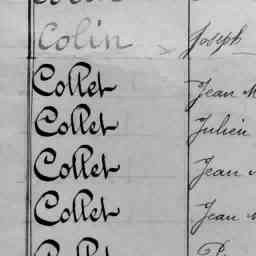 Colin Joseph
Collet Jean M
Collet Julien
Collet Jean
Collet Jean
Collet